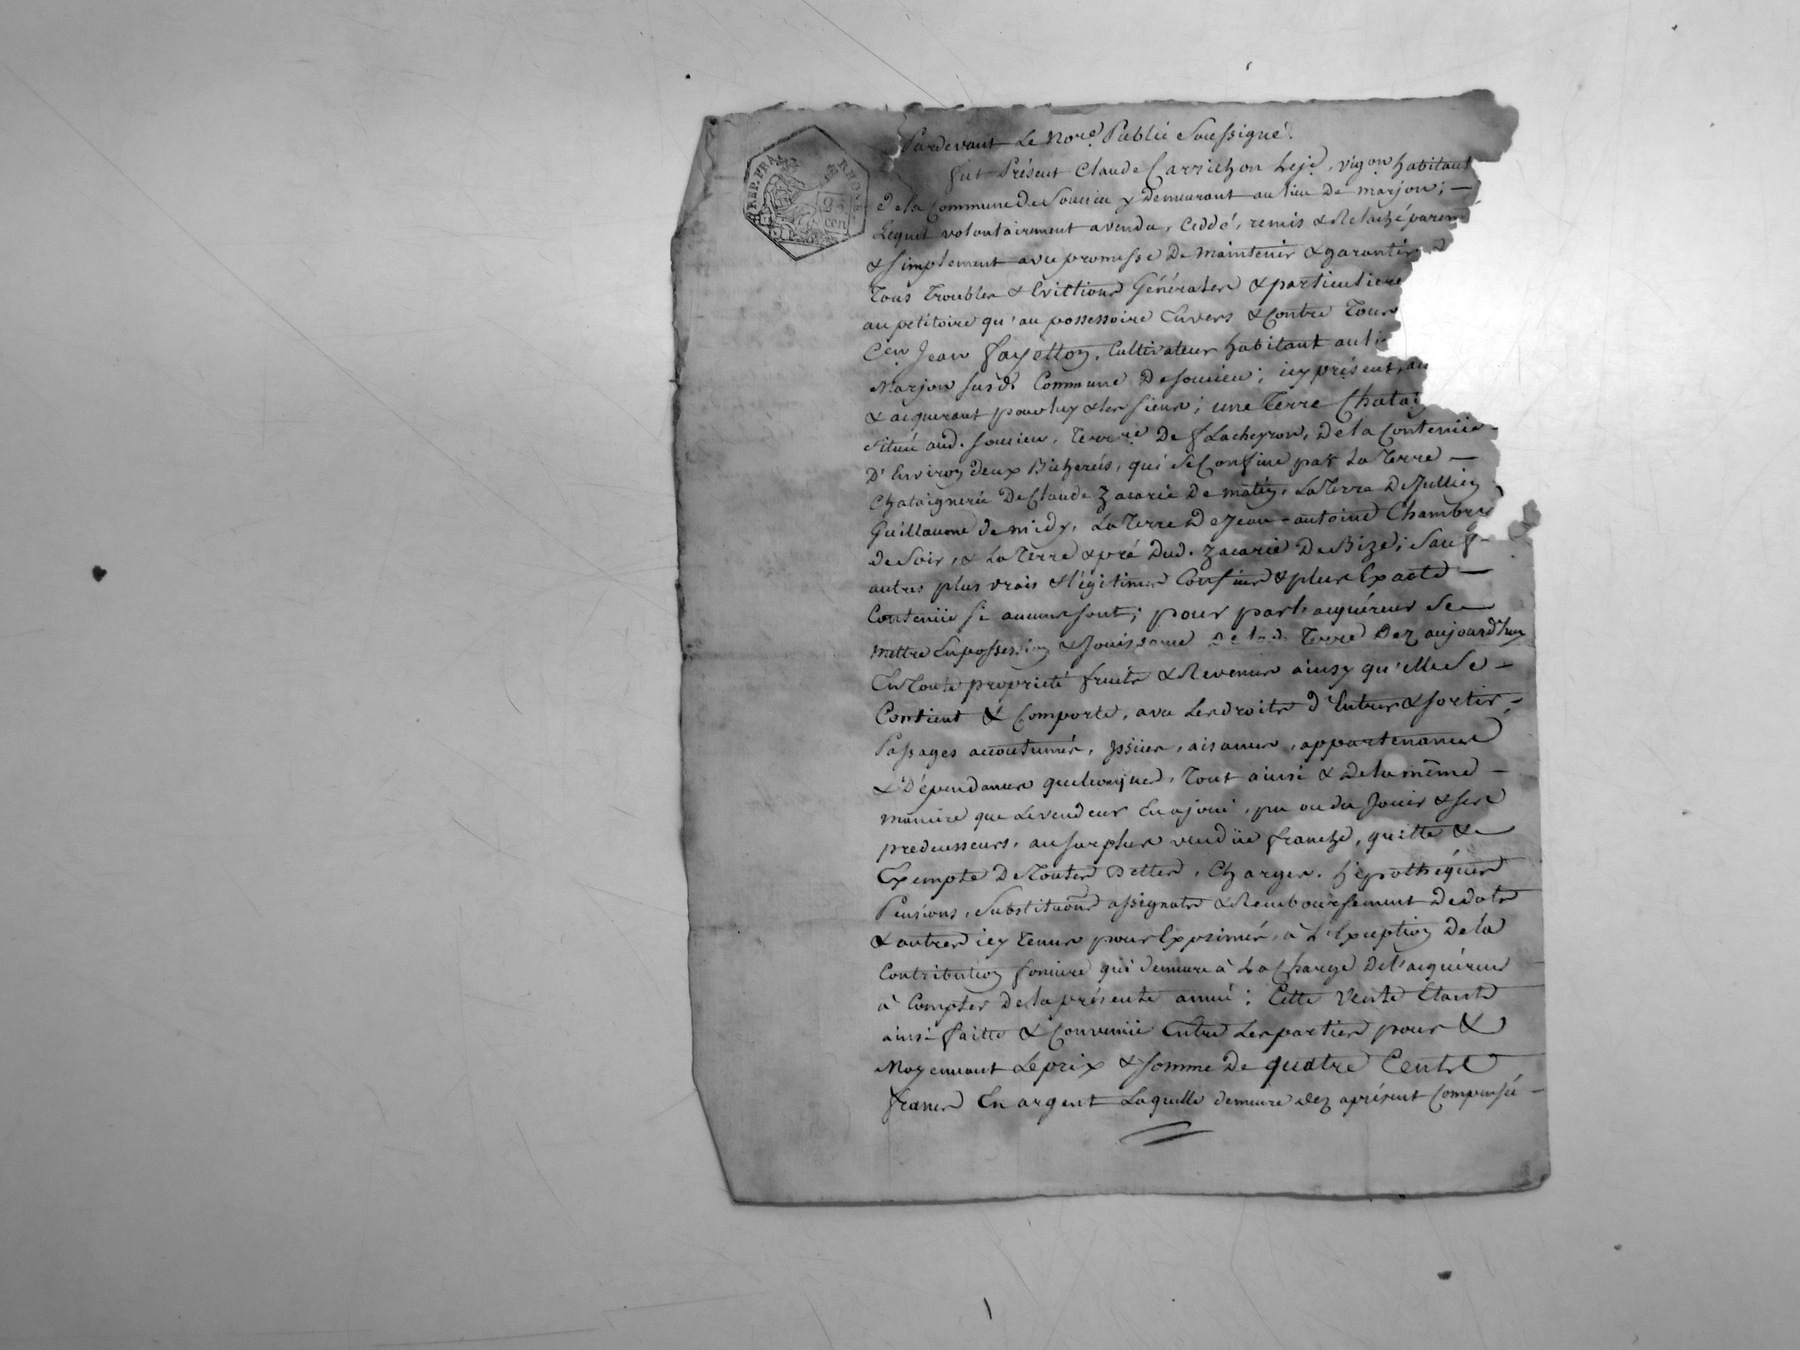 REP. FRA. RHONE
25
cen
Pardevant Le No.re Public Soussigné.
fut Présent Claude Carrichon Leje. vigon habitant
de la Commune de Soucieu y demeurant au lieu de marjon; —
Lequel volontairement a vendu, Ceddé, remis & Relaché purem
& simplement avec promesse De maintenir & garantir d
Tous Troubles & Evictions Générales & particuliere
au petitoire qu'au possessoire Envers & Contre Tous
C.en Jean fayetton, Cultivateur habitant au li
Marjon susd. Commune De soucieu; icy présent, ac
& acquerant pour luy & les siens; une Terre Chataig
située aud. soucieu, Terr.re De flacheyron, De la Contenüe
D'Environ deux Bicherées, qui Se Confine par La Terre —
Chataignerée De Claude Zacarie De matin, La Terre De Jullien
Guillaume de midy, La Terre De Jean-antoine Chambry
de Soir, & La Terre & pré Dud. Zacarie De Bize; Sauf —
autres plus vrais & légitimes Confins & plus Exacte —
Contenüe Si aucuns sont; pour par l'acquéreur Se
mettre En possession & Jouissance De lad. Terre Dez aujourd'huy
En Toute propriété fruits & Revenus ainsy qu'elle Se —
Contient & Comporte, avec Les droits d'Entrer & sortir, —
Passages accoutumés, Issües, aisances, appartenances
& Dépendances quelconques, Tout ainsi & De la même —
maniere que Le vendeur En a joui, pu ou du Jouir & ses
predecesseurs, au surplus vendüe franche, quitte &
Exempte De Toutes Dettes, Charges, hÿpothéques
Pensions, Substitu͠ons assignats & Remboursement De dots
& autres icy Tenus pour Exprimés, à L'Exception De la
Contribution fonciere qui demeure à La Charge De l'acquéreur —
à Compter De la présente année; Cette Vente Etante
ainsi faitte & Convenüe Entre Les parties pour &
Moyennant Le prix & somme De quatre Cents
francs En argent Laquelle demeure dez aprésent Compensée —